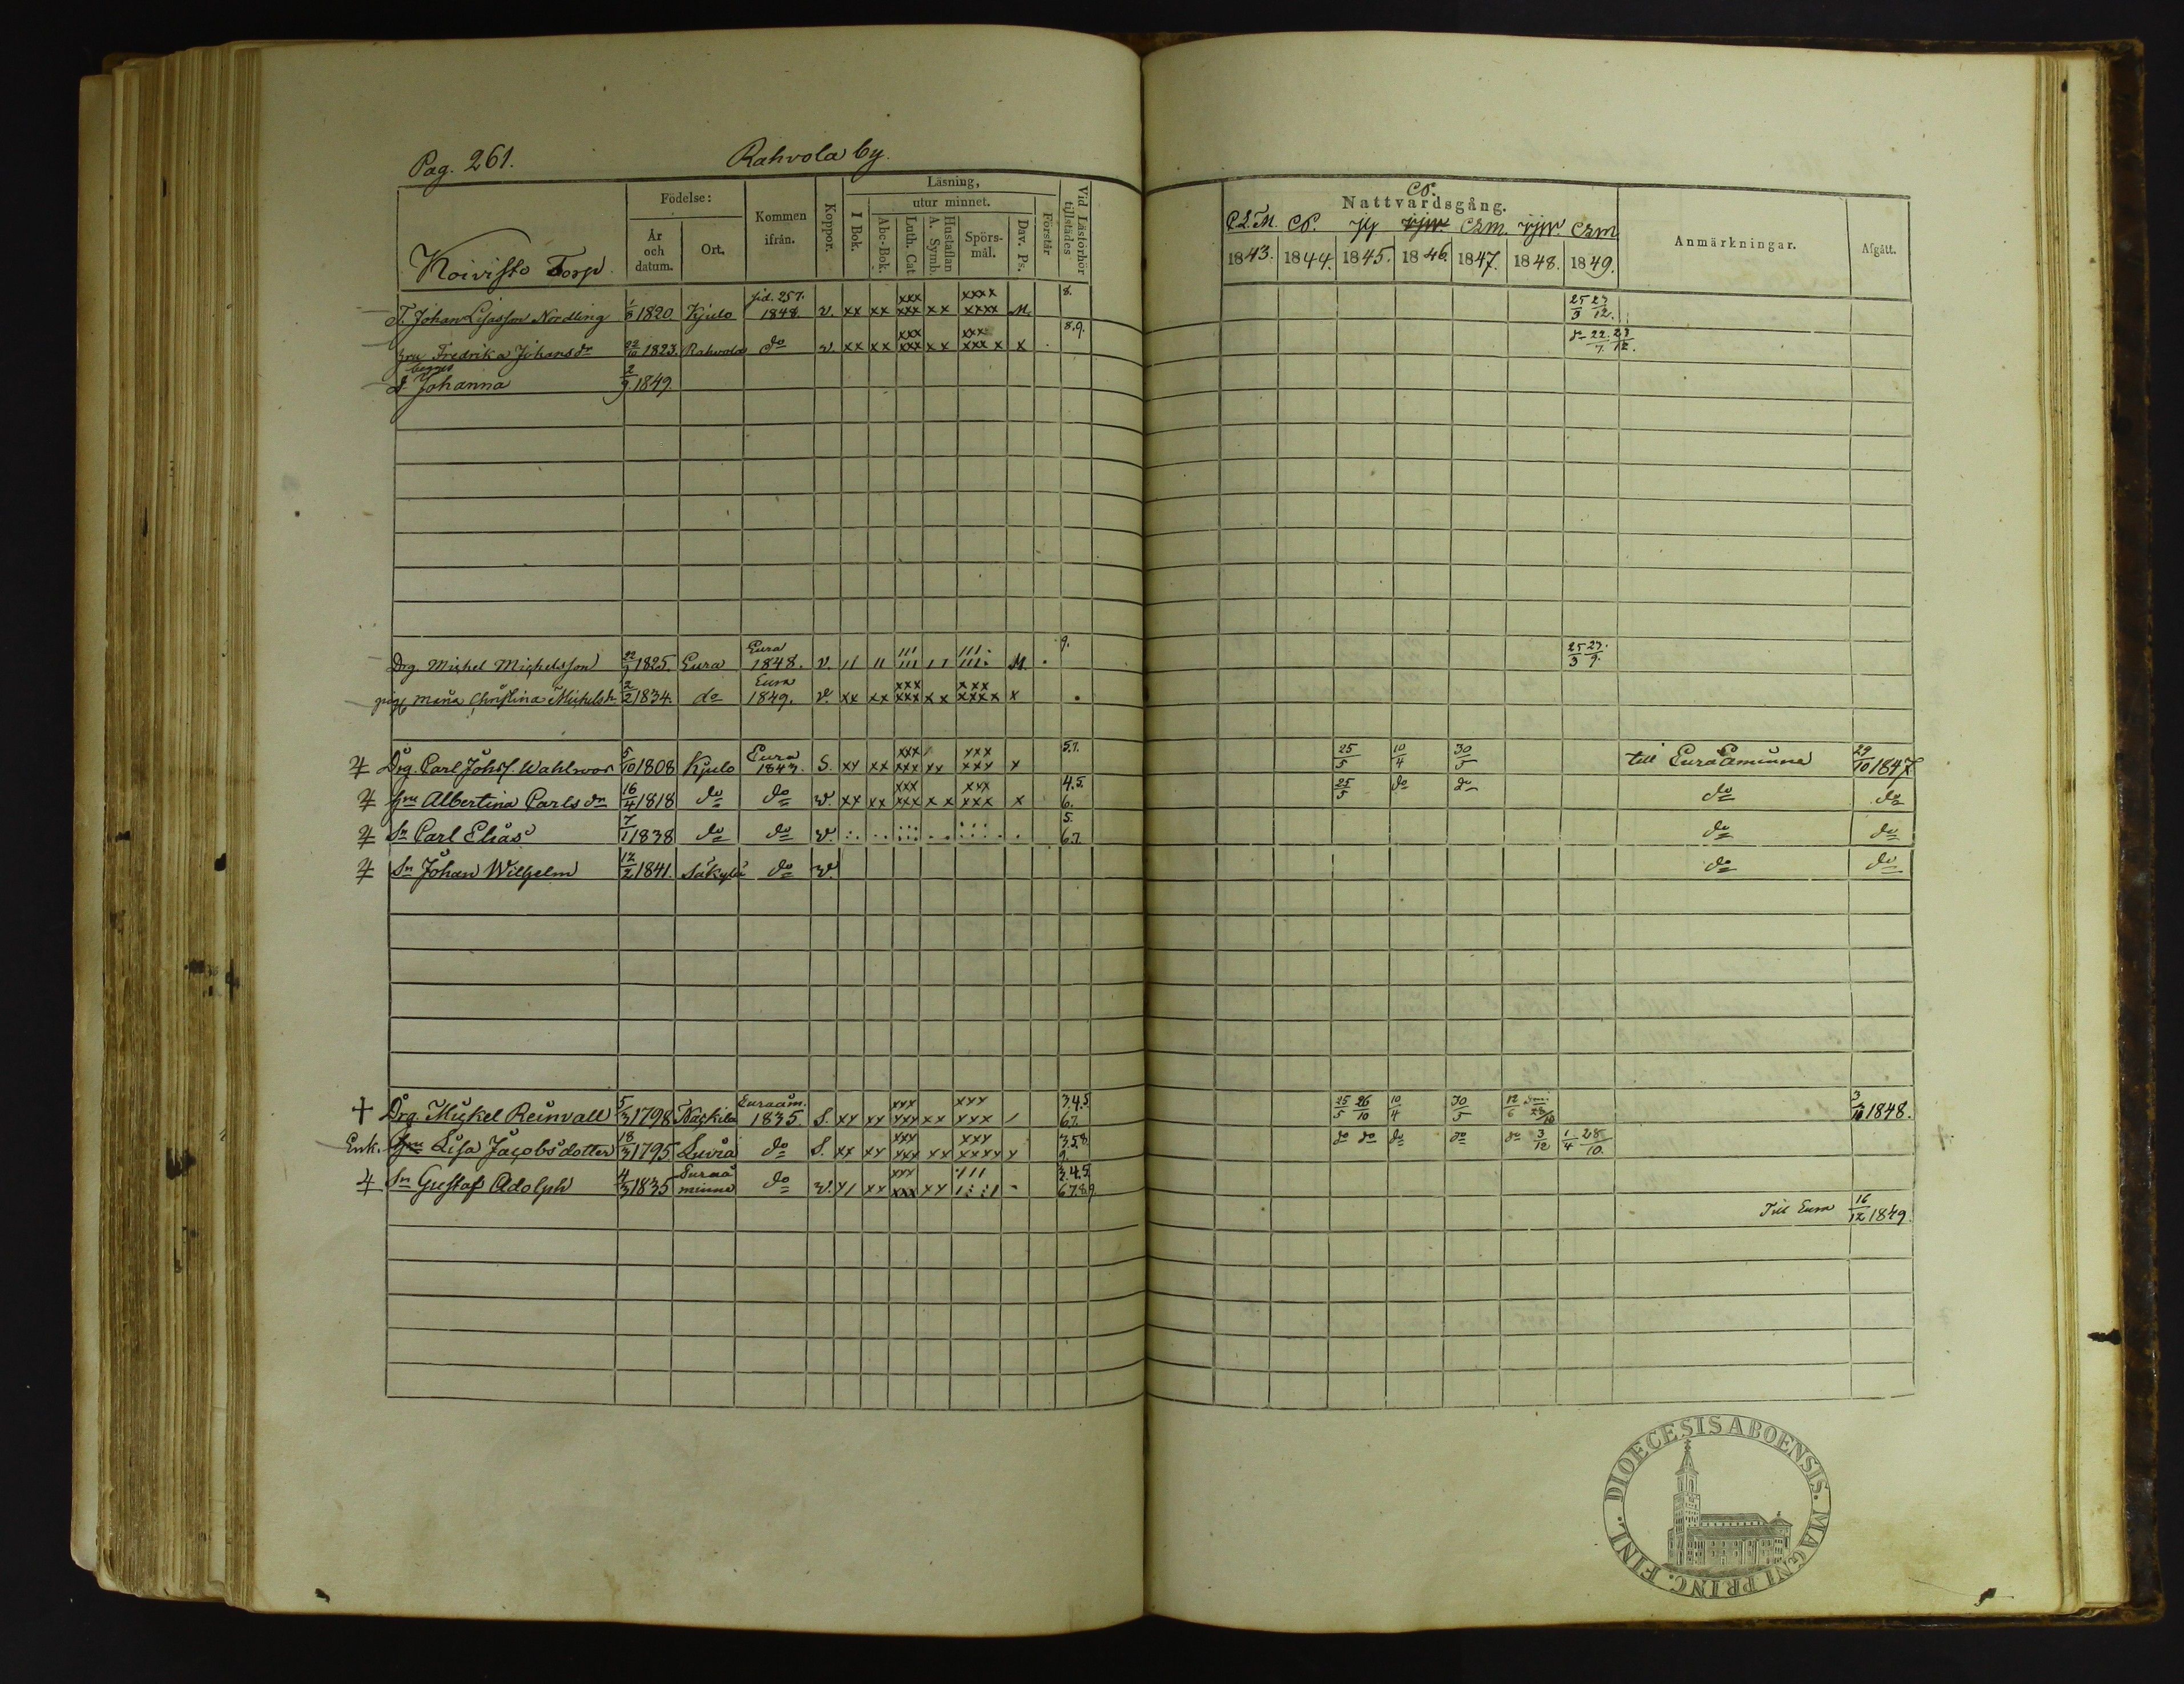 Pag. 261. Rahvola by.
Födelse: Kommen ifrån. Koppor. Läsning, Vid Läsförhör tillstädes
År och datum. Ort. I Bok. utur minnet. Förstår
Abc-Bok. Luth. Cat. Hustaflan A. Symb. Spörsmål. Dav. Ps.
Koivisto Torp.
T. Johan Lisasson Nordling 1/8 1820 Kjulo sid. 257. 1848. v. xx xx xxx xxx xx xxxx xxxx M. 8.
hru Fredrika Johansdr 22/10 1823. Rahvola do v. xx xx xxx xxx xx xxx xxx x x 8.9.
begges
d. Johanna 2/9. 1849
Drg. Michel Michelsson 22/9 1825. Eura Eura 1848. v. 11 11 111 111 11 111. 111. M. 9.
pig. Maria Christina Michelsdr 2/2 1834. do Eura 1849. v. xx xx xxx xxx xx xxx xxxx x
Drg. Carl Johs. Wahlroos 5/10 1808 Kjulo Eura 1843. S. xx xx xxx xxx xx xxx xxx x 5.7.
hru Albertina Carlsdr 16/4 1818 do do v. xx xx xxx xxx xx xxx xxx x 4.5. 6.
Sn Carl Elias 7/1 1838 do do v. 5. 6.7.
Sn Johan Wilhelm 12/2 1841. Säkylä do v.
Drg. Mickel Reinvall 5/3 1798 Euraåm. 1835. S. xx xx xxx xxx xx xxx xxx / 3.4.5 6.7.
Enk. hru Lisa Jacobsdotter 18/3 1795 Luvia do S. xx xx xxx xxx xx xxx xxxx x 3.5.8. 9.
Sn Gustaf Adolph 4/3 1835 Euraå minne do v. x1 xx xxx xxx xx 3.4.5. 6.7.8.9.
C.S.
Nattvardsgång. Anmärkningar. Afgått.
C.L.M. C.S. jlj vjw. CLM. vjw. CLM
1843. 1844. 1845. 1846. 1847. 1848. 1849.
25/3 23/12.
do 22/7. 23/12.
25/3 23/9.
25/5 10/4 30/5 till Euraåminne 29/10 1847.
25/5 do do do do
do do
do do
25/5 26/10 10/4 30/5 12/6 3/10 1848.
do do do do do 3/12 1/4 28/10.
Till Eura 16/12 1849.
DIOECESIS ABOENSIS. MAGNI PRINC. FINL.